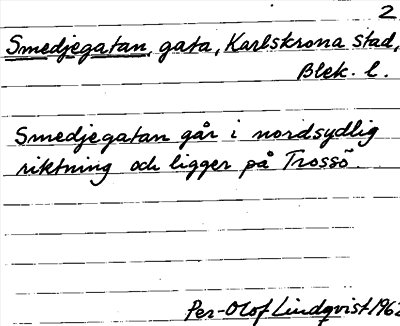 2
Smedjegatan, gata, Karlskrona stad,
Blek. l.
Smedjegatan går i nordsydlig
riktning och ligger på Trossö.
Per-Olof Lindqvist 1962